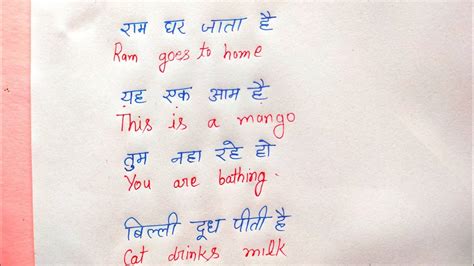 राम घर जाता है
Ram goes to home
यह एक आम है
This is a mango
तुम नहा रहे हो
You are bathing.
बिल्ली दूध पीती है
Cat drinks milk